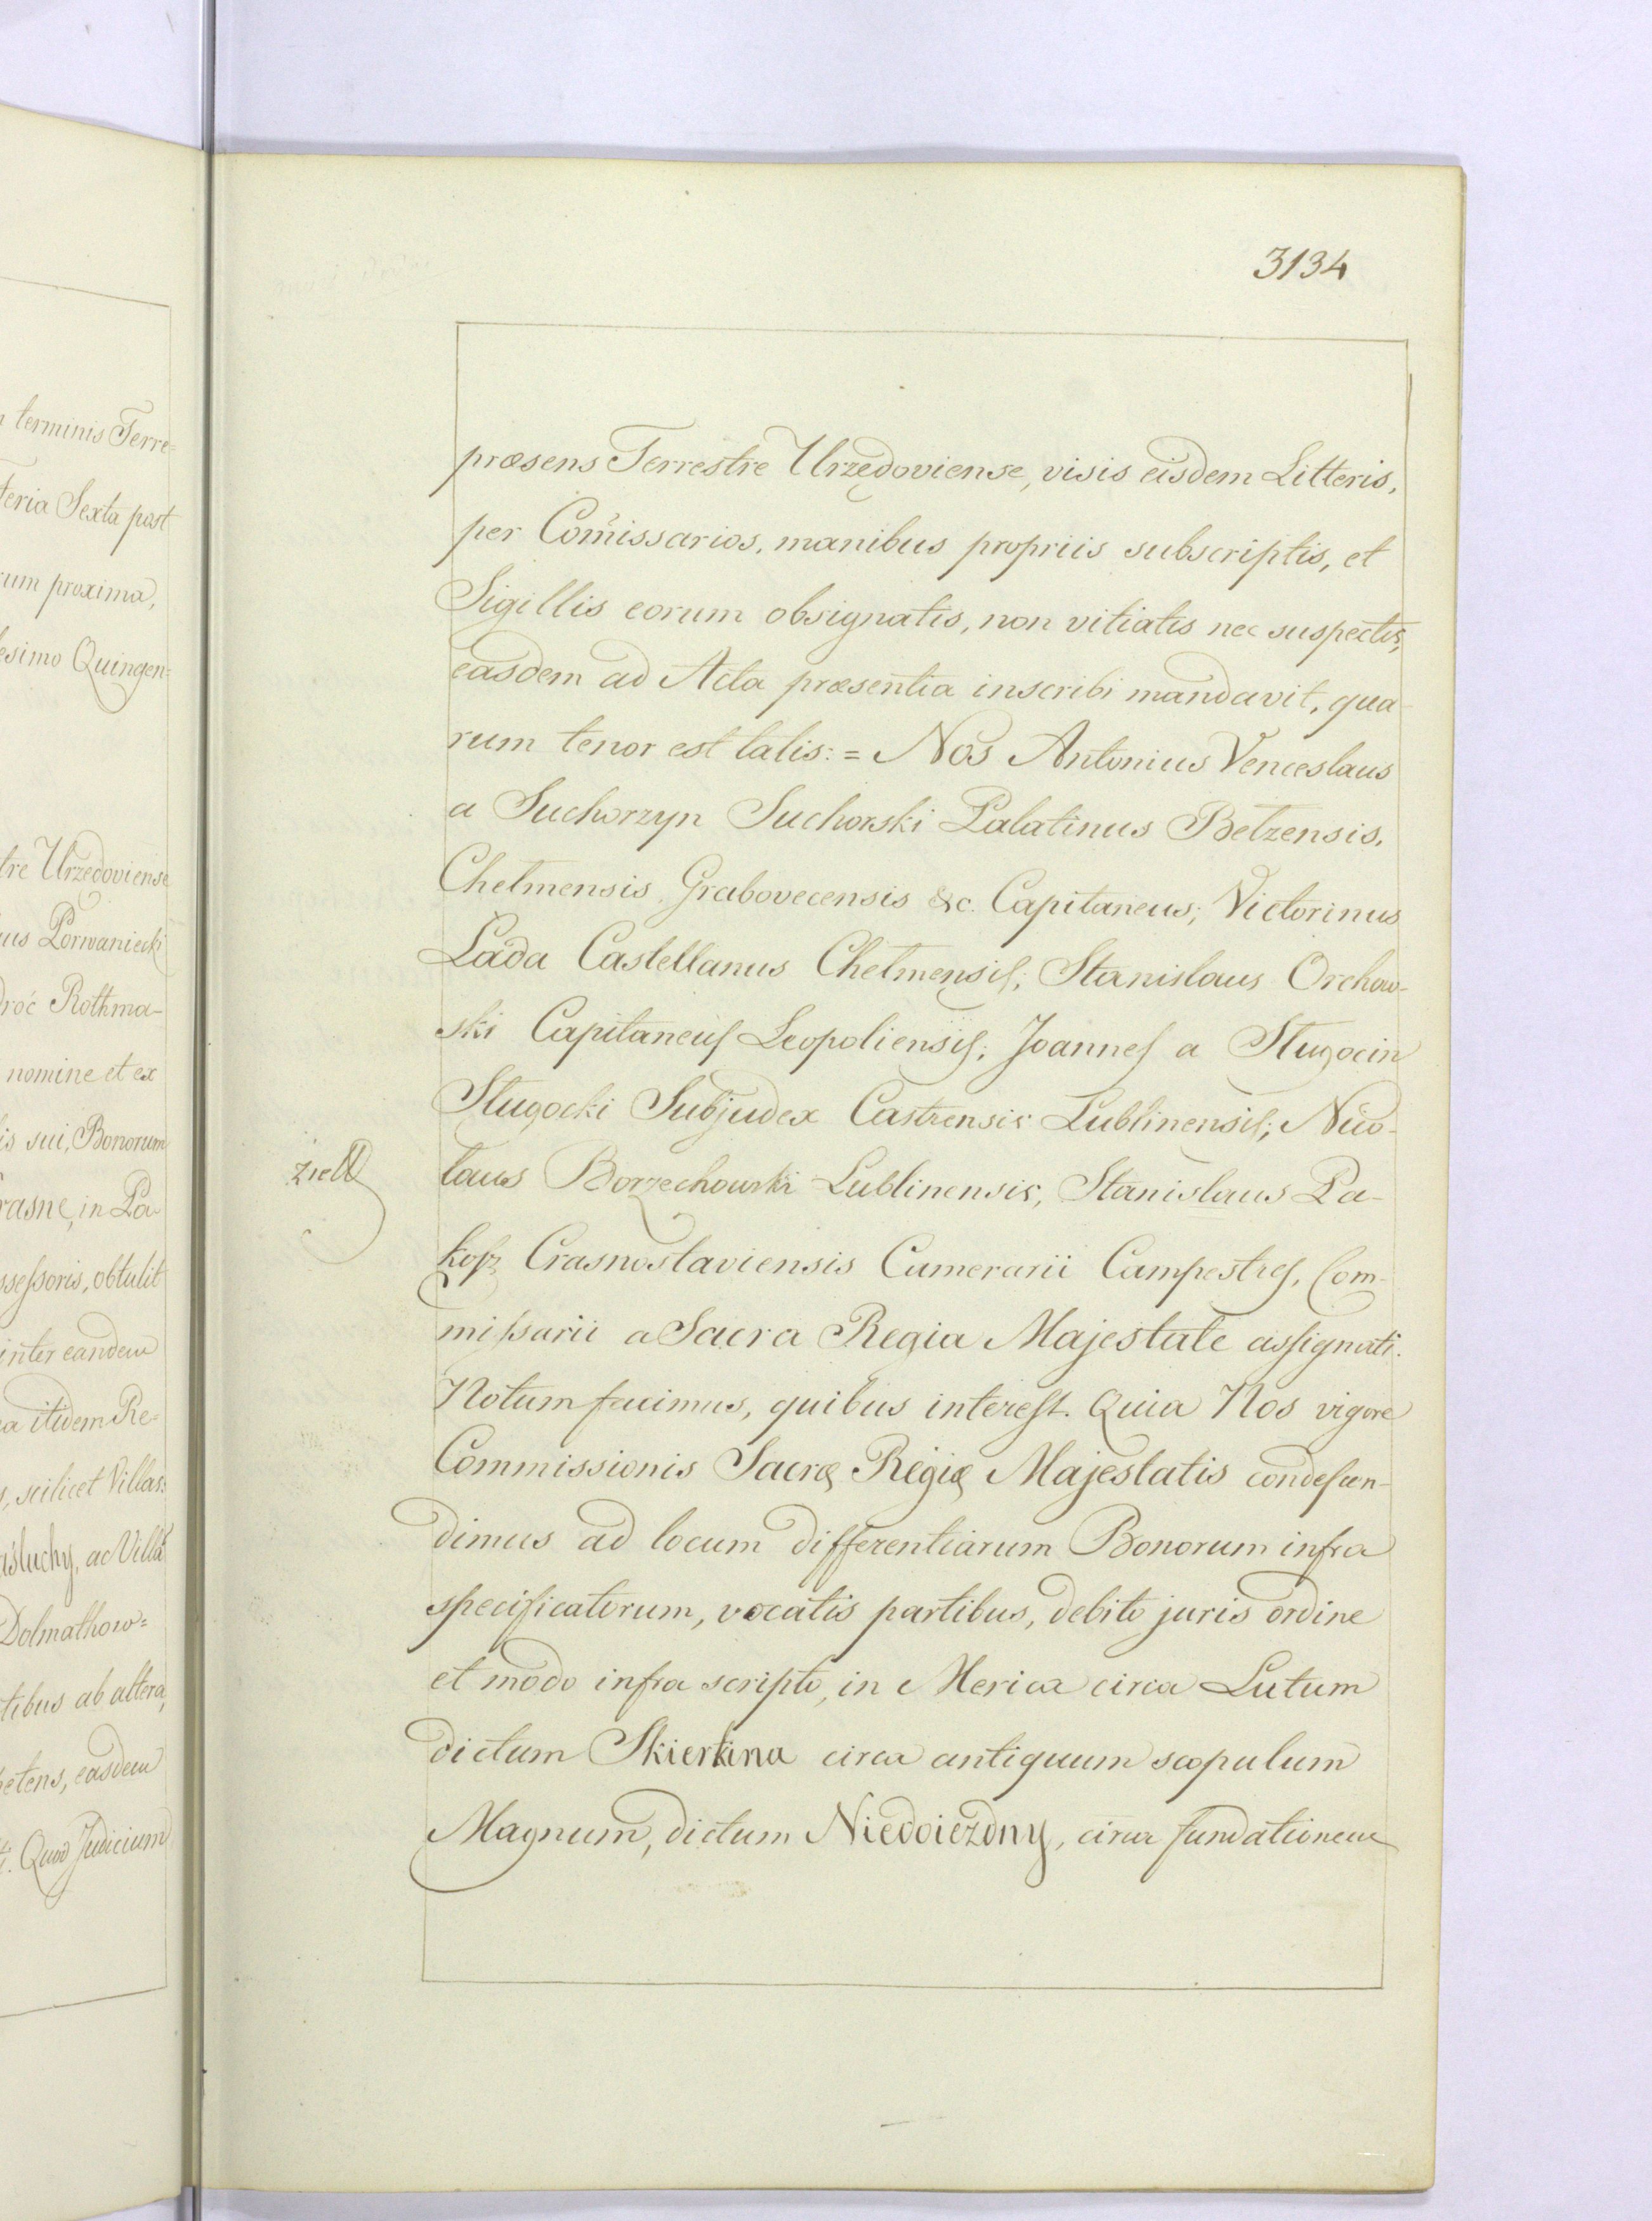 n terminis Terre=
Feria Sexta post
rum proxima,
esimo Quingen=
tre Urzędoviense
us Porwaniecki
droć Rothma-
nomine et ex
is sui, Bonorum
rasne, in Pa-
ssessoris, obtulit
inter eandem
a itidem Re-
s, scilicet Villas:
isluchy, ac Villa
Dolmathow=
tibus ab altera,
petens, easdem
ti. Quod Judicium
3134
præsens Terrestre Urzędoviense, visis eisdem Litteris,
per Com̃issarios, manibus propriis subscriptis, et
Sigillis eorum obsignatis, non vitiatis nec suspectis,
easdem ad Acta præsentia inscribi mandavit, qua-
rum tenor est talis: = Nos Antonius Venceslaus
a Suchorzyn Suchorski Palatinus Betzensis,
Chelmensis Grabovecensis &c. Capitaneus; Victorinus
Łada Castellanus Chelmensis; Stanislaus Orchow-
ski Capitaneus Leopoliensis; Joannes a Sługocin
Sługocki Subjudex Castrensis Lublinensis; Nico-
laus Borzechowski Lublinensis, Stanislaus Pa-
kosz Crasnostaviensis Camerarii Campestres, Com-
missarii a Sacra Regia Majestate assignati.
Notum facimus, quibus interest. Quia Nos vigore
Commissionis Sacræ Regiæ Majestatis condescen-
dimus ad locum differentiarum Bonorum infra
specificatorum, vocatis partibus, debito juris ordine
et modo infra scripto, in Merica circa Lutum
dictum Skierlina circa antiquum scopulum
Magnum, dictum Niedoiezdny, circa fundationem